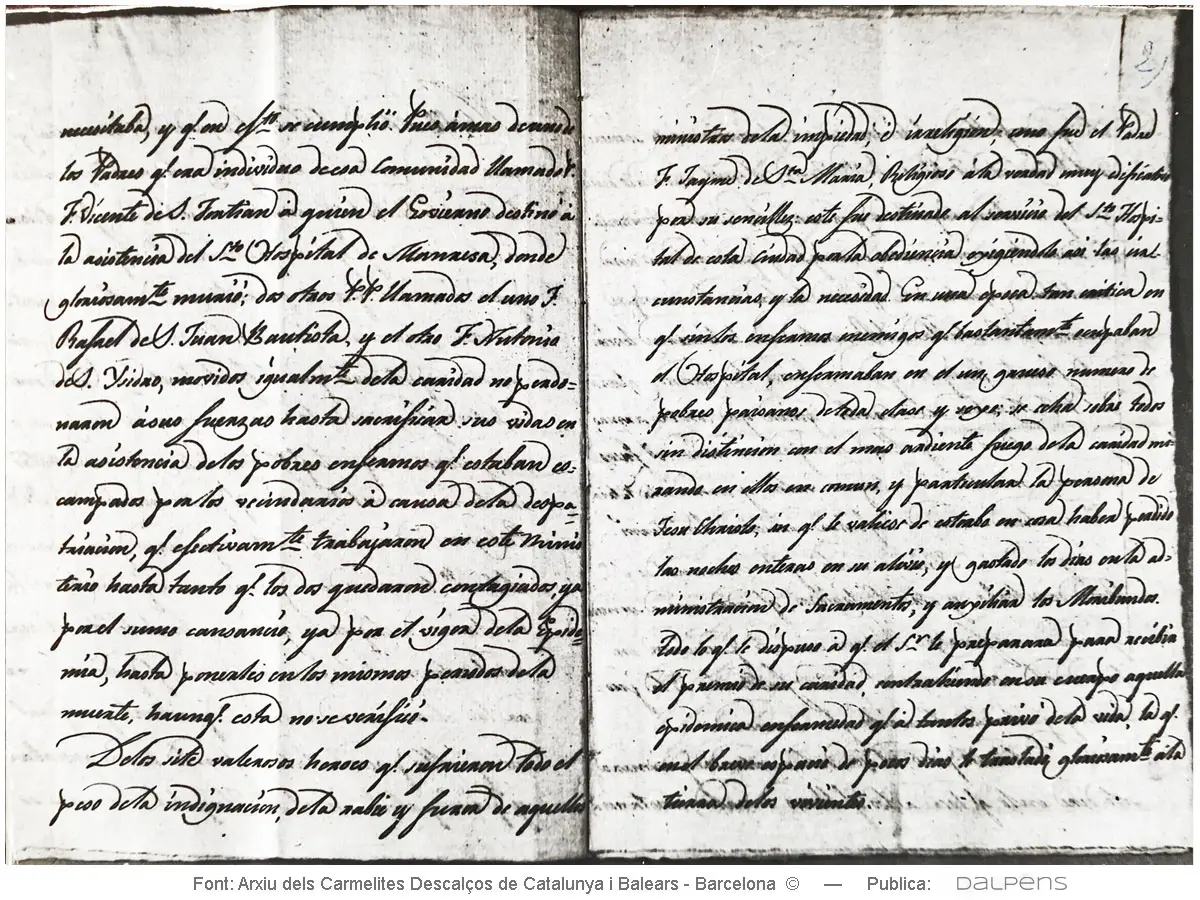 necesitaba, y q.e en efto se cumplió. Pues à mas de uno de
los Padres q.e era individuo de esa Comunidad llamado P.
F. Vicente de S. Tontian à quien el Govierno destinó à
la asistencia del S.to Hospital de Manresa, donde
gloriosam.te murió; dos otros P.P. llamados el uno F.
Rafael de S. Juan Bautista, y el otro F. Antonio
de S. Ysidro, movidos igualm.te dela caridad no perdo=
naron àsus fuerzas hasta sacrificar sus vidas en
la asistencia delos pobres enfermos q.e estaban es=
campados por los vecindarios à causa dela despa=
triacion, q.e efectivam.te trabajaron en este Minis
terio hasta tanto q.e los dos quedaron contagiados, ya
por el sumo cansancio, ya por el vigor dela Epide=
mia, hasta ponerlos en los mismos periodos dela
muerte, haunq.e esta no se verificó.
Delos siete valerosos heroes q.e sufrieron todo el
peso dela indignacion, dela rabia y furor de aquellos
2)
ministros dela impiedad, è irreligion; uno fué el Padre
F. Jayme de S.ta Maria, Religioso àla verdad muy edificativo
por su sencillez: este fue destinado al servicio del S.to Hospi-
tal de esta Ciudad por la obediencia, exigiendolo asi las cir-
cunstancias, y la necesidad. En una época tan critica en
q.e sin los enfermos enemigos q.e bastantem.te ocupaban
el Hospital, enfermaban en el un grueso numero de
pobres paisanos de toda clase y sexo; se echa sobre todos
sin distincion con el mas ardiente fuego dela caridad mi-
rando en ellos en comun, y particular la persona de
Jesu Christo; sin q.e le valiese de estorbo en cosa haber perdido
las noches enteras en su alivio, y gastado los dias en la ad=
ministracion de Sacramentos, y auxiliar los Moribundos.
Todo lo q.e le dispuso à q.e el S.r le preparara para recibir
el premio de su caridad, contrahiendo en su cuerpo aquella
epidemica enfermedad q.e à tantos privó dela vida, la q.e
en el breve espacio de pocos dias le trasladó gloriosam.te àla
tierra delos vivientes.
Font: Arxiu dels Carmelites Descalços de Catalunya i Balears - Barcelona © — Publica: DALPENS